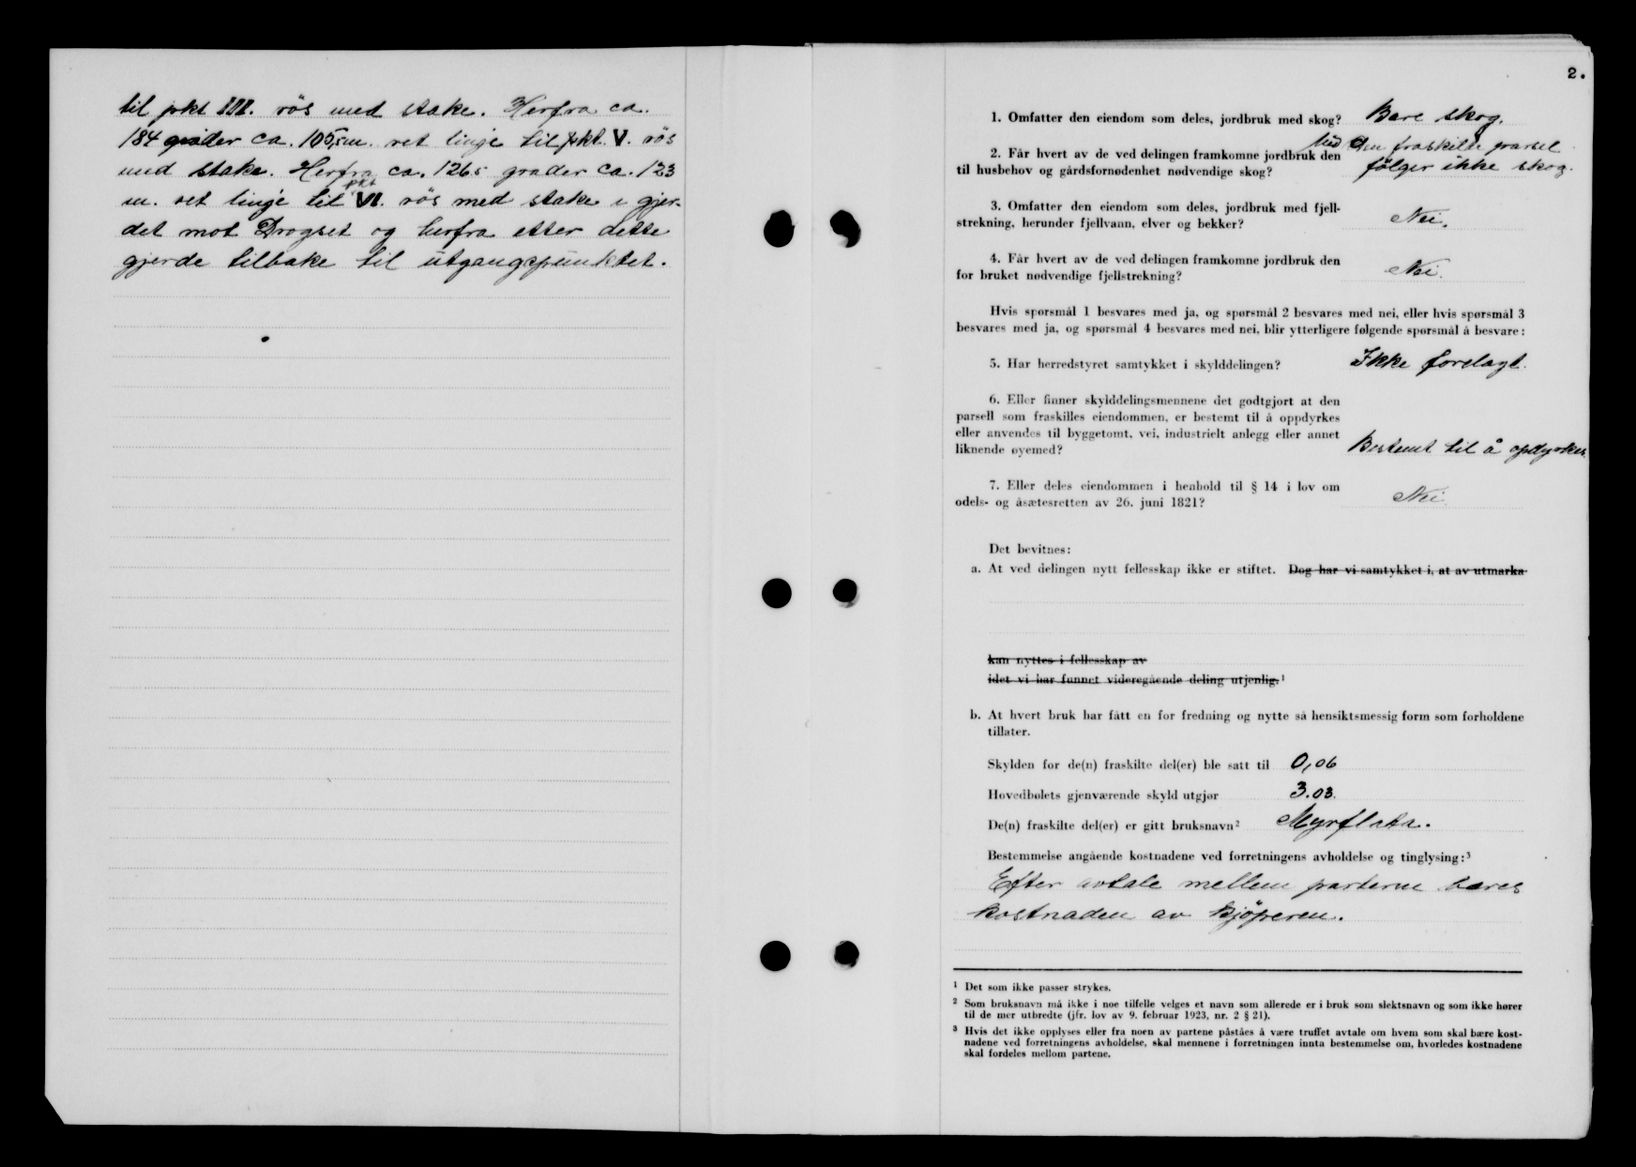 til pkt IIII. rös med stake. Herfra ca.
184 grader ca. 105,5 m. ret linje til pkt. V. rös
med stake. Herfra ca. 126,5 grader ca. 123
m. ret linje til pkt VI. rös med stake i gjer-
det mot Drogset og herfra etter dette
gjerde tilbake til utgangspunktet.
2.
1. Omfatter den eiendom som deles, jordbruk med skog? Bare skog.
2. Får hvert av de ved delingen framkomne jordbruk den Med den fraskilte parsel
til husbehov og gårdsfornødenhet nødvendige skog? følger ikke skog.
3. Omfatter den eiendom som deles, jordbruk med fjell-
strekning, herunder fjellvann, elver og bekker? Nei.
4. Får hvert av de ved delingen framkomne jordbruk den
for bruket nødvendige fjellstrekning? Nei.
Hvis spørsmål 1 besvares med ja, og spørsmål 2 besvares med nei, eller hvis spørsmål 3
besvares med ja, og spørsmål 4 besvares med nei, blir ytterligere følgende spørsmål å besvare:
5. Har herredstyret samtykket i skylddelingen? Ikke forelagt.
6. Eller finner skylddelingsmennene det godtgjort at den
parsell som fraskilles eiendommen, er bestemt til å oppdyrkes
eller anvendes til byggetomt, vei, industrielt anlegg eller annet
liknende øyemed? Bestemt til å opdyrkes
7. Eller deles eiendommen i henhold til § 14 i lov om
odels- og åsætesretten av 26. juni 1821? Nei.
Det bevitnes:
a. At ved delingen nytt fellesskap ikke er stiftet. Dog har vi samtykket i, at av utmarka
kan nyttes i fellesskap av
idet vi har funnet videregående deling utjenlig.¹
b. At hvert bruk har fått en for fredning og nytte så hensiktsmessig form som forholdene
tillater.
Skylden for de(n) fraskilte del(er) ble satt til 0,06
Hovedbølets gjenværende skyld utgjør 3.03.
De(n) fraskilte del(er) er gitt bruksnavn² Myrflata.
Bestemmelse angående kostnadene ved forretningens avholdelse og tinglysing:³
Efter avtale mellem parterne bæres
kostnaden av kjöperen.
¹ Det som ikke passer strykes.
² Som bruksnavn må ikke i noe tilfelle velges et navn som allerede er i bruk som slektsnavn og som ikke hører
til de mer utbredte (jfr. lov av 9. februar 1923, nr. 2 § 21).
³ Hvis det ikke opplyses eller fra noen av partene påståes å være truffet avtale om hvem som skal bære kost-
nadene ved forretningens avholdelse, skal mennene i forretningen innta bestemmelse om, hvorledes kostnadene
skal fordeles mellom partene.